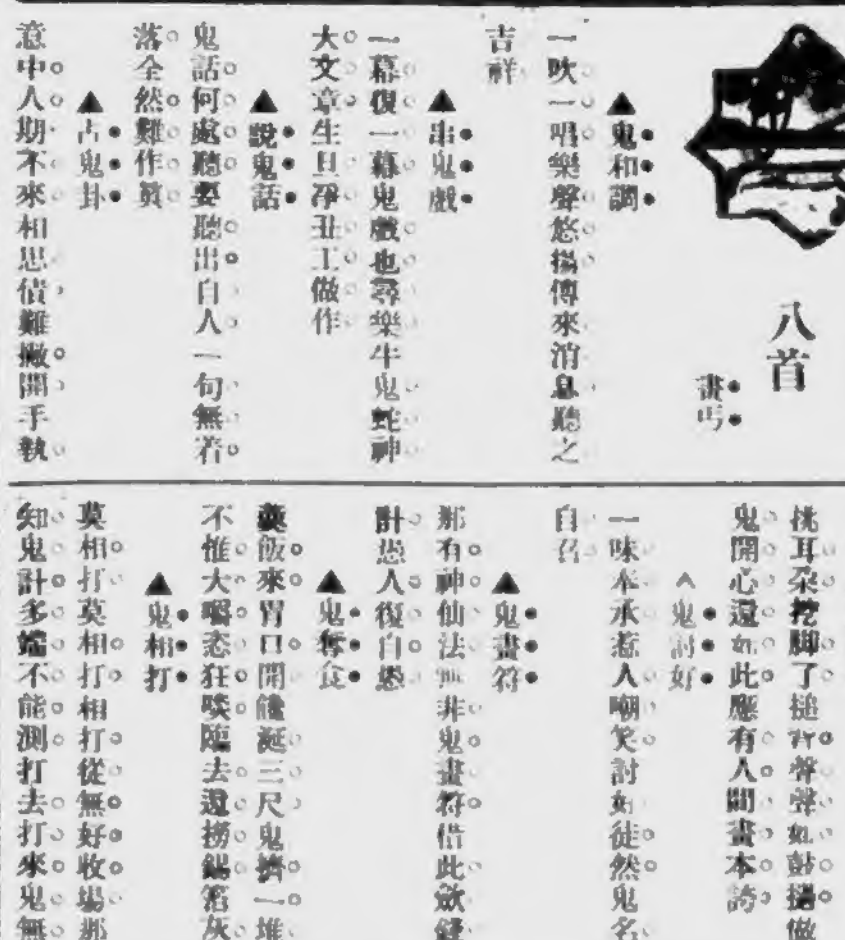 八首
畫丐
▲鬼和調
一吹一唱樂聲悠揚傳來消息聽之
吉祥
▲串鬼戲
一幕復一幕鬼戲也尋樂牛鬼蛇神
大文章生旦淨丑工做作
▲說鬼話
鬼話何處聽要聽出自人一句無着
落全然難作眞
▲占鬼卦
意中人期不來相思債難撇開手執
挑耳朵挖脚了搥背聲聲如鼓撾做
鬼開心還如此應有人間畫本誇
▲鬼討好
一味奉承惹人嘲笑討好徒然鬼名
自召
▲鬼畫符
那有神仙法無非鬼畫符借此斂錢
計愚人復自愚
▲鬼奪食
羹飯來胃口開饞涎三尺鬼擠一堆
不惟大嚼恣狂啖臨去還撈錫箔灰
▲鬼相打
莫相打莫相打相打從無好收場那
知鬼計多端不能測打去打來鬼無